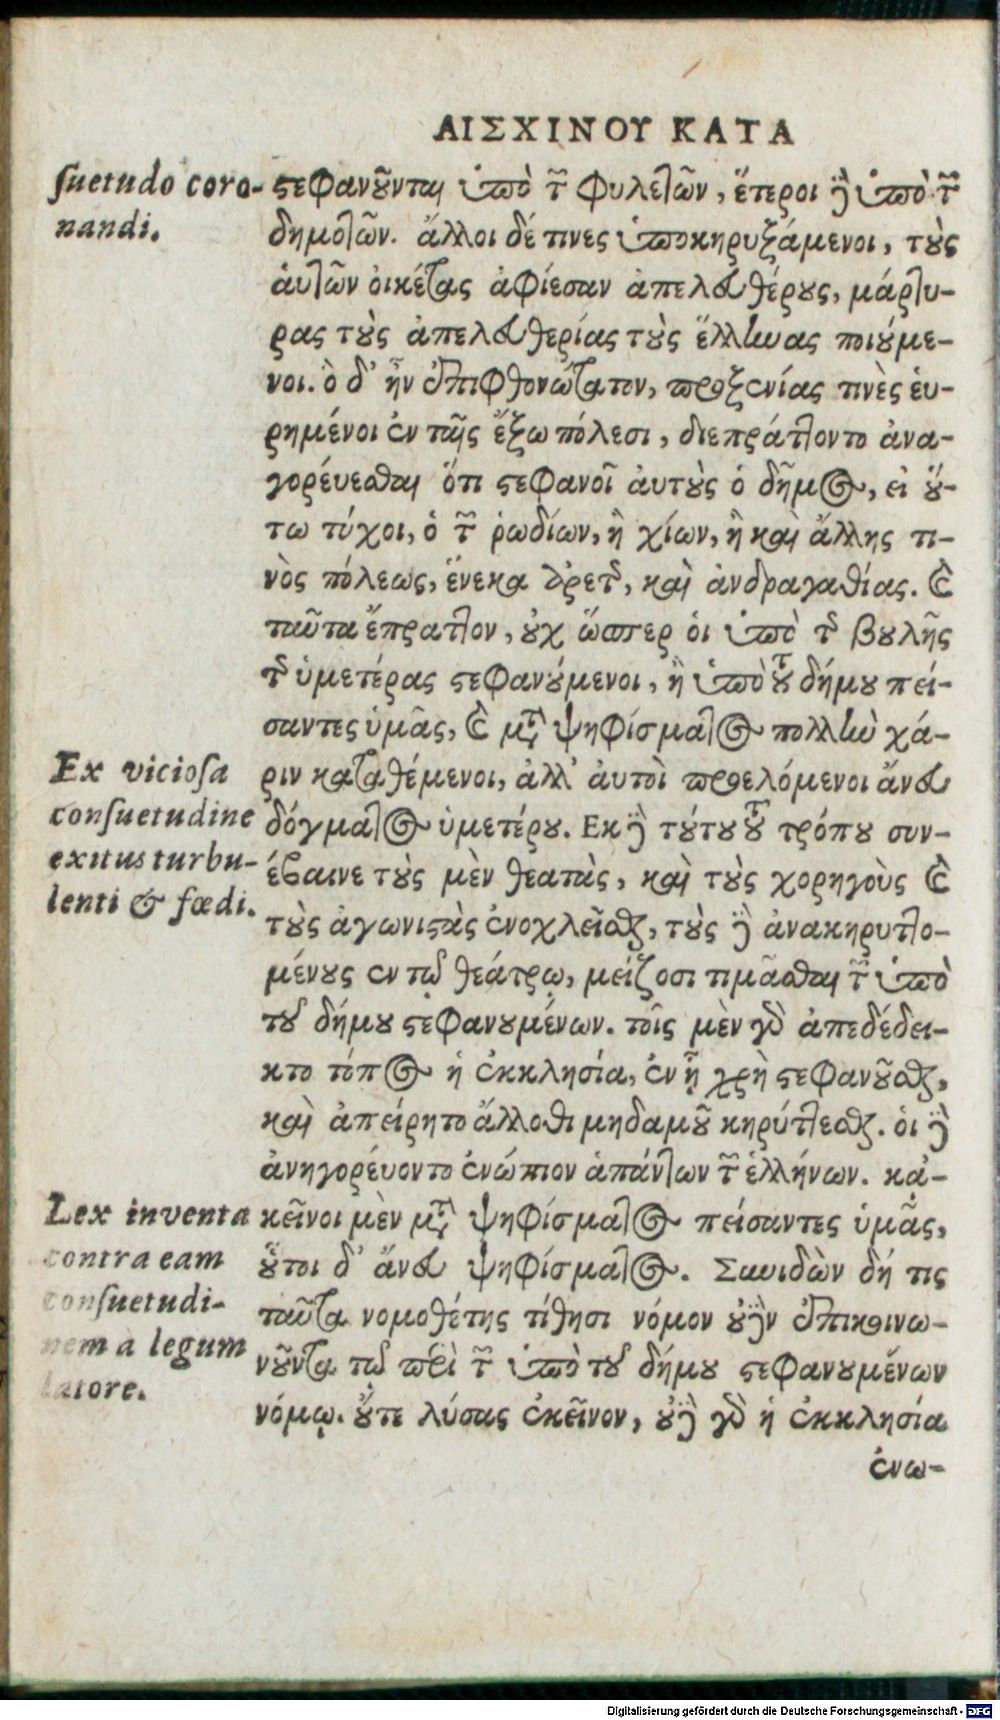 ΑΙΣΧΙΝΟΥ ΚΑΤΑ
suetudo coro-
nandi.
στεφανοῦνται ὑπὸ τῶν φυλετῶν, ἕτεροι δὲ ὑπὸ τῶν
δημοτῶν. ἄλλοι δέ τινες ὑποκηρυξάμενοι, τοὺς
ἁυτῶν οἰκέτας ἀφίεσαν ἀπελευθέρους, μάρτυ-
ρας τοὺς ἀπελευθερίας τοὺς ἕλληνας ποιούμε-
νοι. ὃ δ' ἦν ἐπιφθονώτατον, προξενίας τινὲς ἑυ-
ρημένοι ἐν ταῖς ἔξω πόλεσι, διεπράττοντο ἀνα-
γορέυεσθαι ὅτι στεφανοῖ ἀυτοὺς ὁ δῆμος, εἰ ὅυ-
τω τύχοι, ὁ τῶν ῥωδίων, ἢ χίων, ἢ καὶ ἄλλης τι-
νὸς πόλεως, ἕνεκα ἀρετῆς, καὶ ἀνδραγαθίας. καὶ
ταῦτα ἔπραττον, οὐχ ὥσπερ ὁι ὑπὸ τῆς βουλῆς
τῆς ὑμετέρας στεφανούμενοι, ἢ ὑπὸ τοῦ δήμου πεί-
σαντες ὑμᾶς, καὶ μετὰ ψηφίσματος πολλὴν χά-
ριν καταθέμενοι, ἀλλ' ἀυτοὶ προελόμενοι ἄνευ
δόγματος ὑμετέρου. Εκ δὲ τούτου τοῦ τρόπου συν-
έβαινε τοὺς μὲν θεατὰς, καὶ τοὺς χορηγοὺς καὶ
τοὺς ἀγωνιστὰς ἐνοχλεῖσθαι, τοὺς δὲ ἀνακηρυττο-
μένους ἐν τῷ θεάτρῳ, μείζοσι τιμᾶσθαι τῶν ὑπὸ
τοῦ δήμου στεφανουμένων. τοῖς μὲν γὰρ ἀπεδέδει-
κτο τόπος ἡ ἐκκλησία, ἐν ᾗ χρὴ στεφανοῦσθαι,
καὶ ἀπείρητο ἄλλοθι μηδαμοῦ κηρύττεσθαι. ὁι δὲ
ἀνηγορέυοντο ἐνώπιον ἁπάντων τῶν ἑλλήνων. κἀ-
κεῖνοι μὲν μετὰ ψηφίσματος πείσαντες ὑμᾶς,
οὗτοι δ' ἄνευ ψηφίσματος. Συνιδὼν δή τις
ταῦτα νομοθέτης τίθησι νόμον οὐδὲν ἐπικοινω-
νοῦντα τῷ περὶ τῶν ὑπὸ τοῦ δήμου στεφανουμένων
νόμῳ. οὔτε λύσας ἐκεῖνον, οὐδὲ γὰρ ἡ ἐκκλησία
ἐνω-
Ex viciosa
consuetudine
exitus turbu-
lenti & fœdi.
Lex inventa
contra eam
consuetudi-
nem à legum
latore.
Digitalisierung gefördert durch die Deutsche Forschungsgemeinschaft - DFG